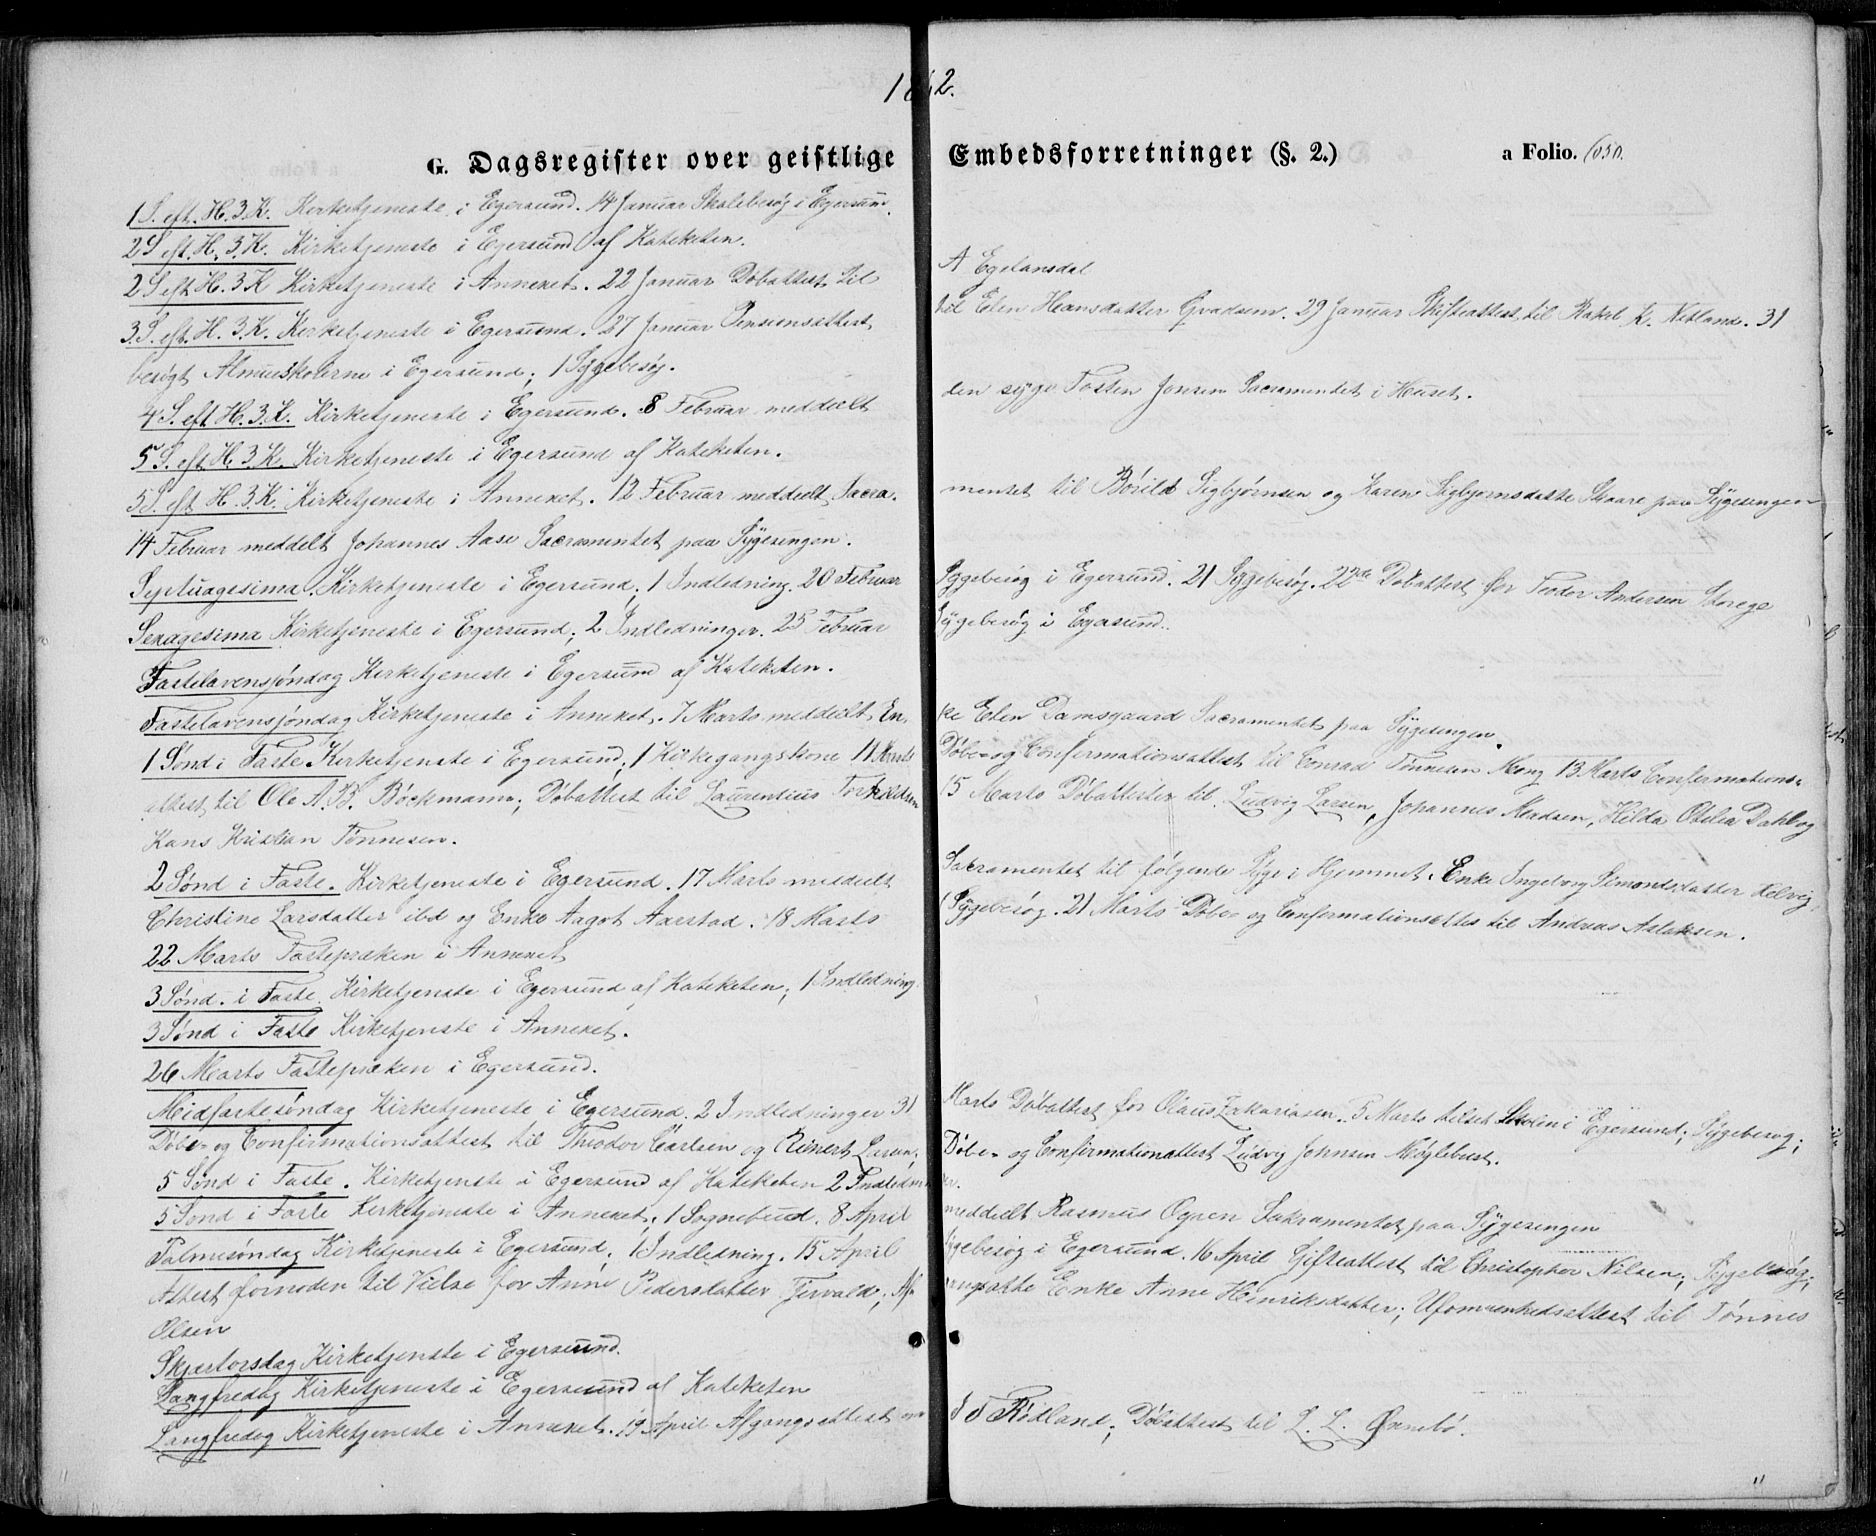 1862.
G. Dagsregister over geistlige Embedsforretninger (§. 2.) a Folio. 650.
1 S. eft. H. 3 K. Kirketjeneste i Egersund. 14 Januar Skolebesøg i Egersund.
2 S eft. H. 3 K. Kirketjeneste i Egersund af Kateketen.
2 S eft H. 3 K Kirketjeneste i Annexet. 22 Januar Døbattest til A Egelansdal
3. S. eft. H. 3. K. Kirketjeneste i Egersund. 27 Januar Pensionsattest til Elen Hansdatter 29 Januar Skifteattest til Rakel K. Netland. 31
besøgt Almueskolerne i Egersund; 1 Sygebesøg.
4 S. eft H. 3. K. Kirketjeneste i Egersund. 8 Februar meddelt den syge Tosten Jonsen Sacramentet i Huset.
5 S. eft H. 3 K. Kirketjeneste i Egersund af Kateketen.
5 S. eft H. 3 K. Kirketjeneste i Annexet. 12 Februar meddelt Sacramentet til Børild Sigbjørnsen og Karen Sigbjørnsdatte Skaare paa Sygesengen
14 Februar meddelt Johannes Aase Sacramentet paa Sygesengen.
Septuagesima Kirketjeneste i Egersund; 1 Indledning. 20 Februar Sygebesøg i Egersund. 21 Sygebesøg. 22de Døbattest for Teodor Andersen
Sexagesima Kirketjeneste i Egersund; 2 Indledninger. 25 Februar Sygebesøg i Egersund.
Fastelavensjøndag Kirketjeneste i Egersund af Kateketen.
Fastelavensjøndag Kirketjeneste i Annexet. 7 Marts meddelt Enke Elen Damsgaard Sacramentet paa Sygesengen.
1 Sønd i Faste Kirketjeneste i Egersund; 1 Kirkegangskone 11 Marts Døbe- og Confirmationsattest til Conrad Tønnesen Mong 13 Marts Confirmations-
attest til Ole A. B. Bøckmann; Døbattest til Laurentius Torkildsen 15 Marts Døbattester til Ludvig Larsen, Johannes Madsen, Hilda Otelia Dahl og
Hans Kristian Tønnesen.
2 Sønd i Faste. Kirketjeneste i Egersund. 17 Marts meddelt Sakramentet til følgende Syge i Hjemmet. Enke Ingeborg Simonsdatter
Christine Larsdatter ibd og Enke Aagot Aarstad. 18 Marts 1 Sygebesøg. 21 Marts Døbe- og Confirmationsattes til Andreas Aslaksen.
22 Marts Fastepræken i Annexet
3 Sønd. i Faste. Kirketjeneste i Egersund af Kateketen; 1 Indledning.
3 Sønd i Faste Kirketjeneste i Annexet.
26 Marts Fastepræken i Egersund.
Midfastesøndag Kirketjeneste i Egersund. 2 Indledninger 31 Marts Døbattest for Olaus Zakariasen. 5 Marts tilset Skolen i Egersund; Sygebesøg;
Døbe- og Confirmationsattest til Theodor Carlsen og Reinert Larsen; Døbe- og Confirmationattest Ludvig Johnsen Møglebust.
5 Sønd i Faste. Kirketjeneste i Egersund af Kateketen 2 Indledninger.
5 Sønd i Faste Kirketjeneste i Annexet; 1 Sognebud. 8 April meddelt Rasmus Ognen Sakramentet paa Sygesengen
Palmesøndag Kirketjeneste i Egersund; 1 Indledning. 15 April Sygebesøg i Egersund. 16 April Gifteattest til Christopher Nilsen; Sygebesøg;
Attest fornøden til Vielse for Anne Pedersdatter Enke Anne Henriksdatter; Uformuenhedsattest til Tønnes
Olsen
Skjærtorsdag Kirketjeneste i Egersund.
Langfredag Kirketjeneste i Egersund af Kateketen
Langfredag Kirketjeneste i Annexet. 19 April Afgangsattest Rødland; Døbattest til L. L.